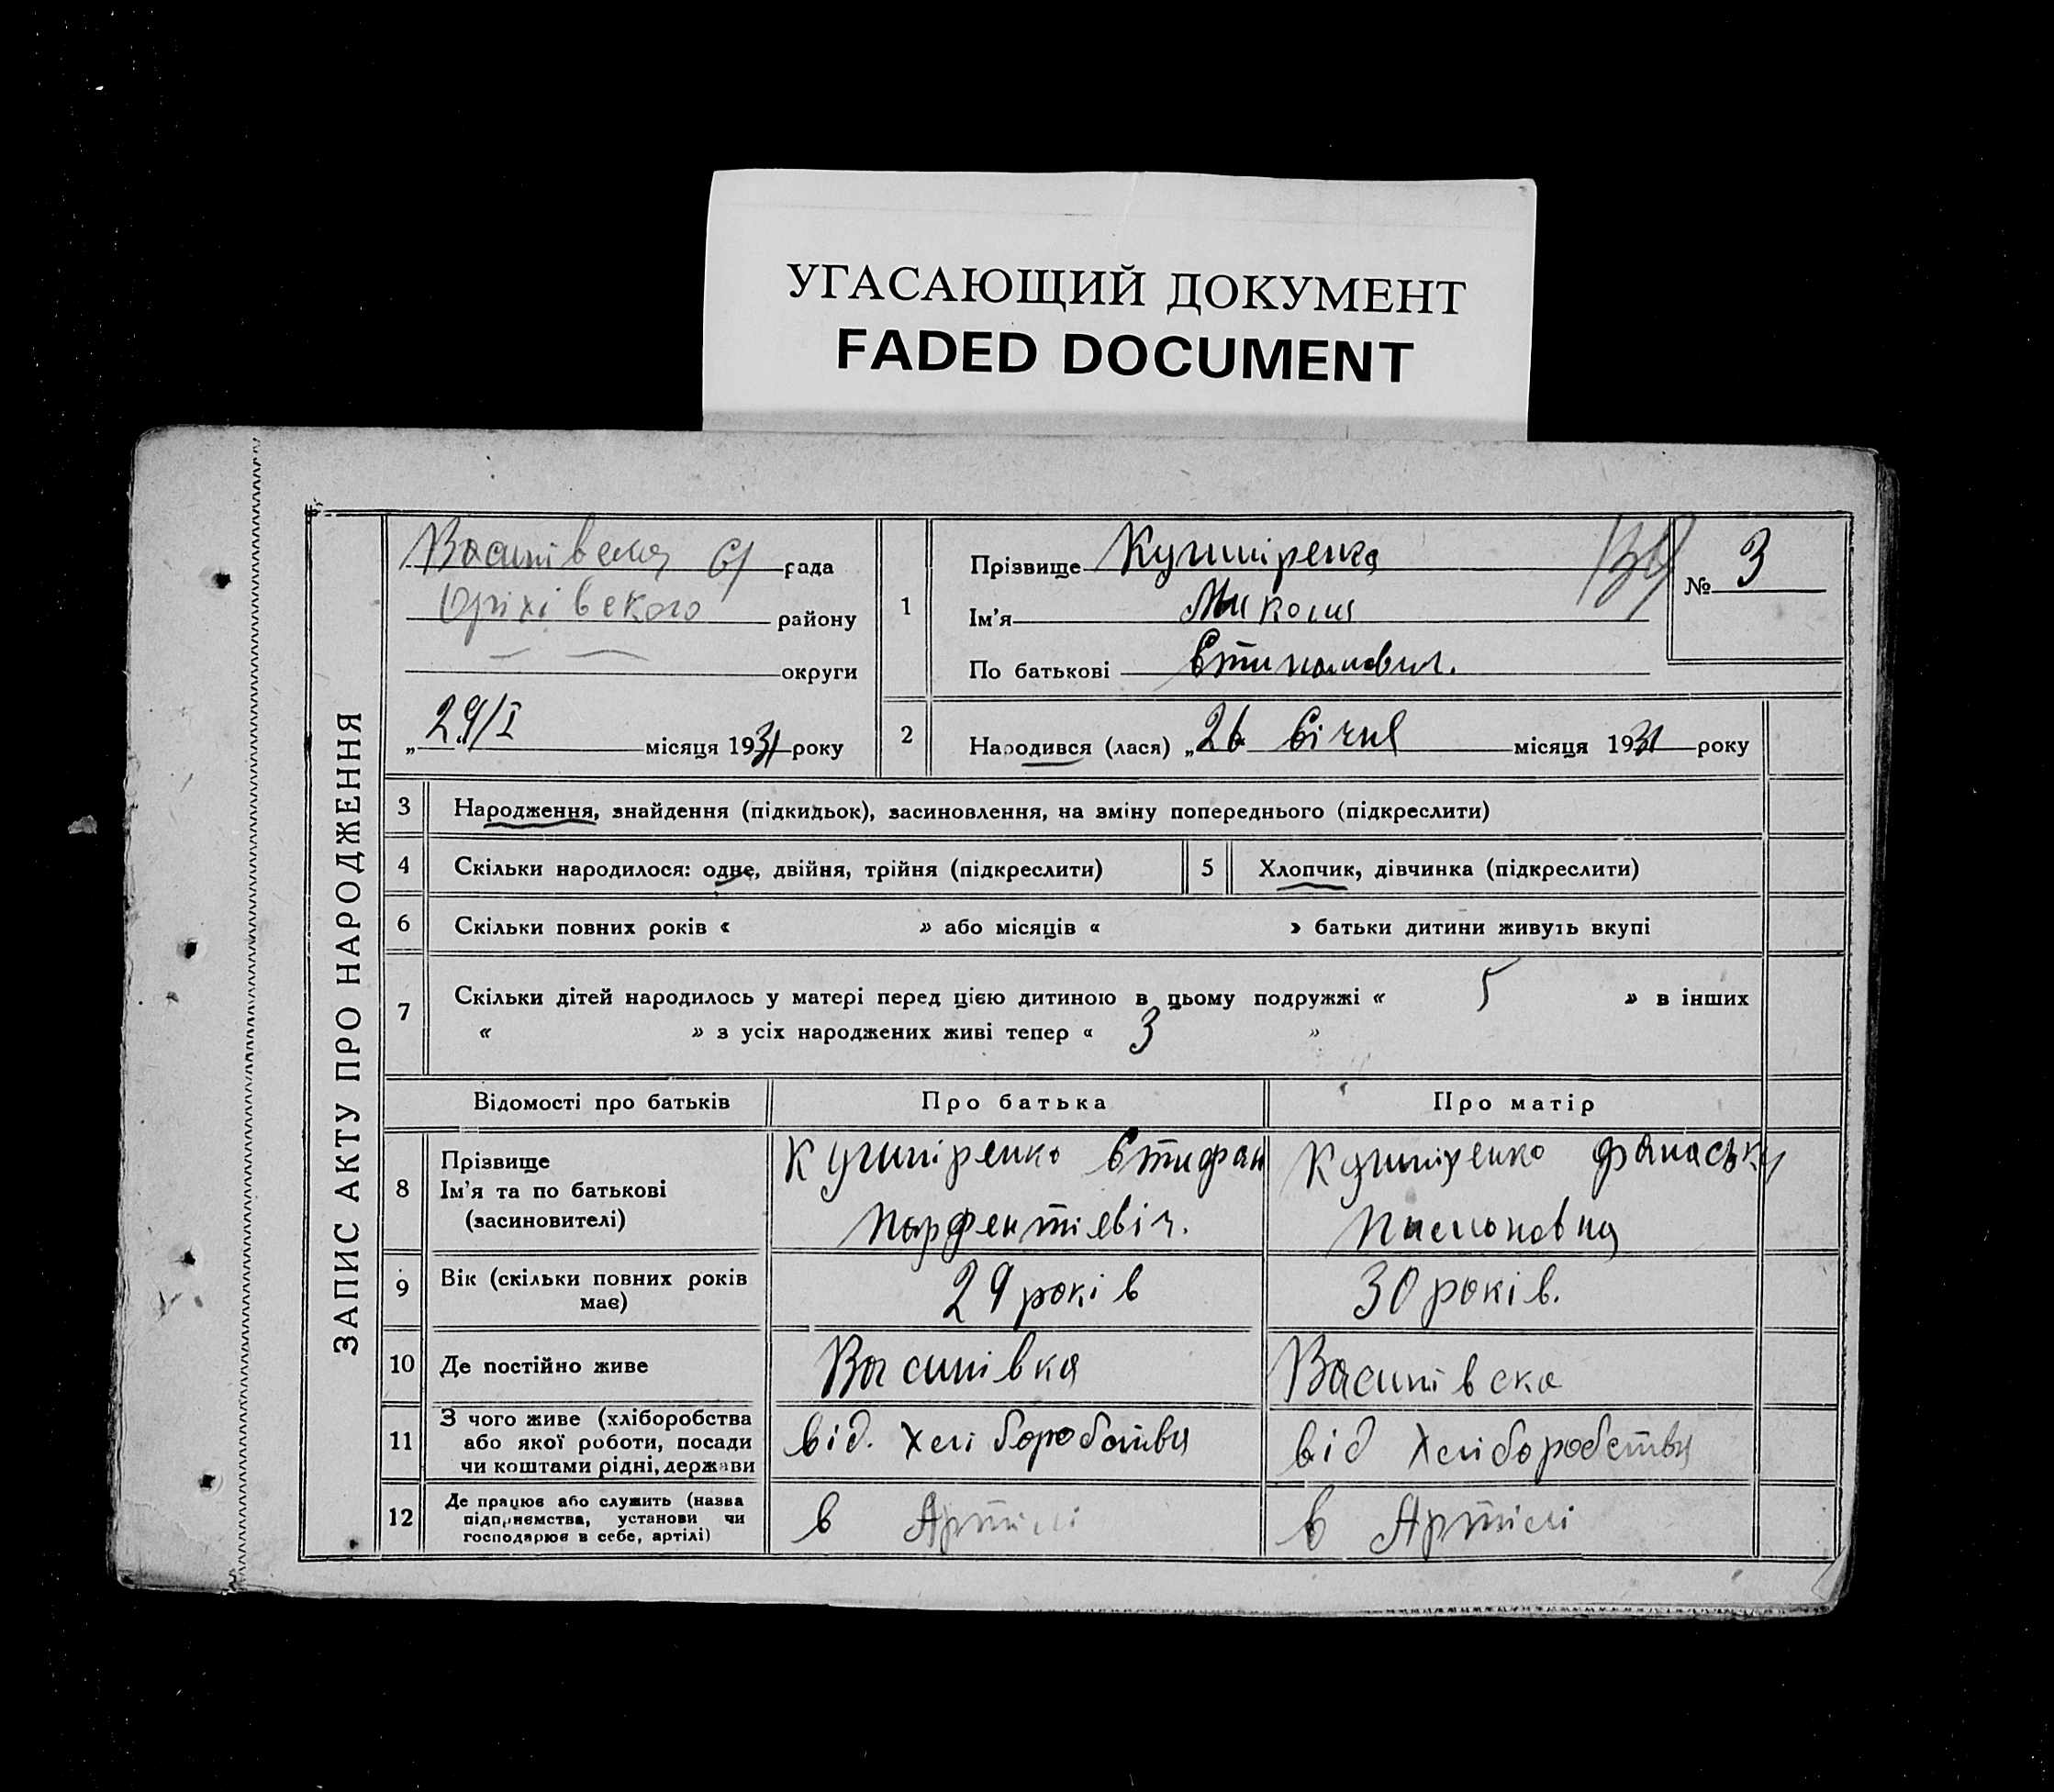 УГАСАЮЩИЙ ДОКУМЕНТ
FADED DOCUMENT
ЗАПИС АКТУ ПРО НАРОДЖЕННЯ
Василівська с/ рада
Оріхівского району
округи
„ 29/I місяця 1931 року
1
Прізвище Кушніренко
Ім'я Микола
По батькові Стипанович.
№ 3
2
Народився (лася) „ 26 січня місяця 1931 року
3 Народження, знайдення (підкидьок), засиновлення, на зміну попереднього (підкреслити)
4 Скільки народилося: одне, двійня, трійня (підкреслити) 5 Хлопчик, дівчинка (підкреслити)
6 Скільки повних років « » або місяців « » батьки дитини живуть вкупі
7 Скільки дітей народилось у матері перед цією дитиною в цьому подружжі « 5 » в інших
« » з усіх народжених живі тепер « 3 »
Відомості про батьків Про батька Про матір
8 Прізвище
Ім'я та по батькові
(засиновителі)
Кушніренко Стифан
Парфентіевіч.
Кушніренко
9 Вік (скільки повних років
має)
29 років
30 років.
10 Де постійно живе Василівка Василівска
11 З чого живе (хліборобства
або якої роботи, посади
чи коштами рідні, держави
від. Хліборобства
від Хліборобства
12 Де працює або служить (назва
підприємства, установи чи
господарює в себе, артілі)
в Артілі
в Артілі